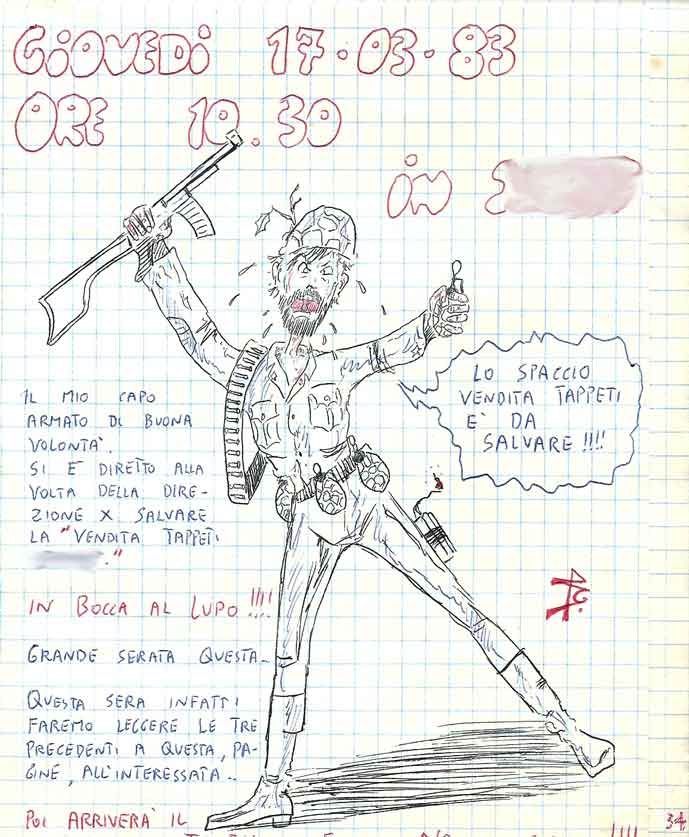 GIOVEDI 17.03.83
ORE 10.30
IN
LO SPACCIO
VENDITA TAPPETI
E' DA
SALVARE !!!!
IL MIO CAPO
ARMATO DI BUONA
VOLONTA'.
SI E DIRETTO ALLA
VOLTA DELLA DIRE-
ZIONE X SALVARE
LA "VENDITA TAPPETI
."
IN BOCCA AL LUPO !!!!
GRANDE SERATA QUESTA-
QUESTA SERA INFATTI
FAREMO LEGGERE LE TRE
PRECEDENTI A QUESTA, PA-
GINE, ALL'INTERESSATA..
POI ARRIVERA' IL
34